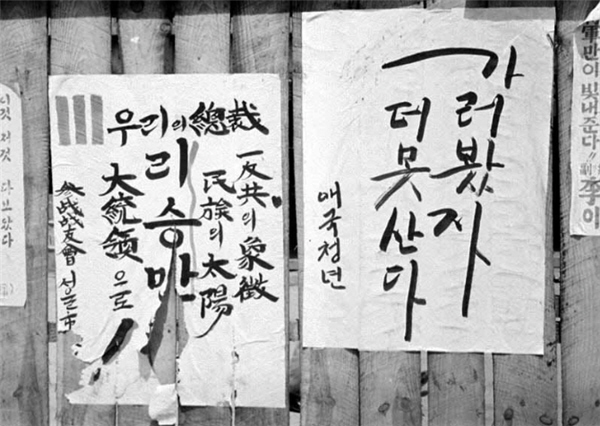 만이 빛내준다!!
李이
가러봤자
더못산다
애국청년
우리의 總裁
一反共의 象徵
民族의 太陽
리승만
大統領으로!
戰友會 서울市
이것 저것 다 보았다